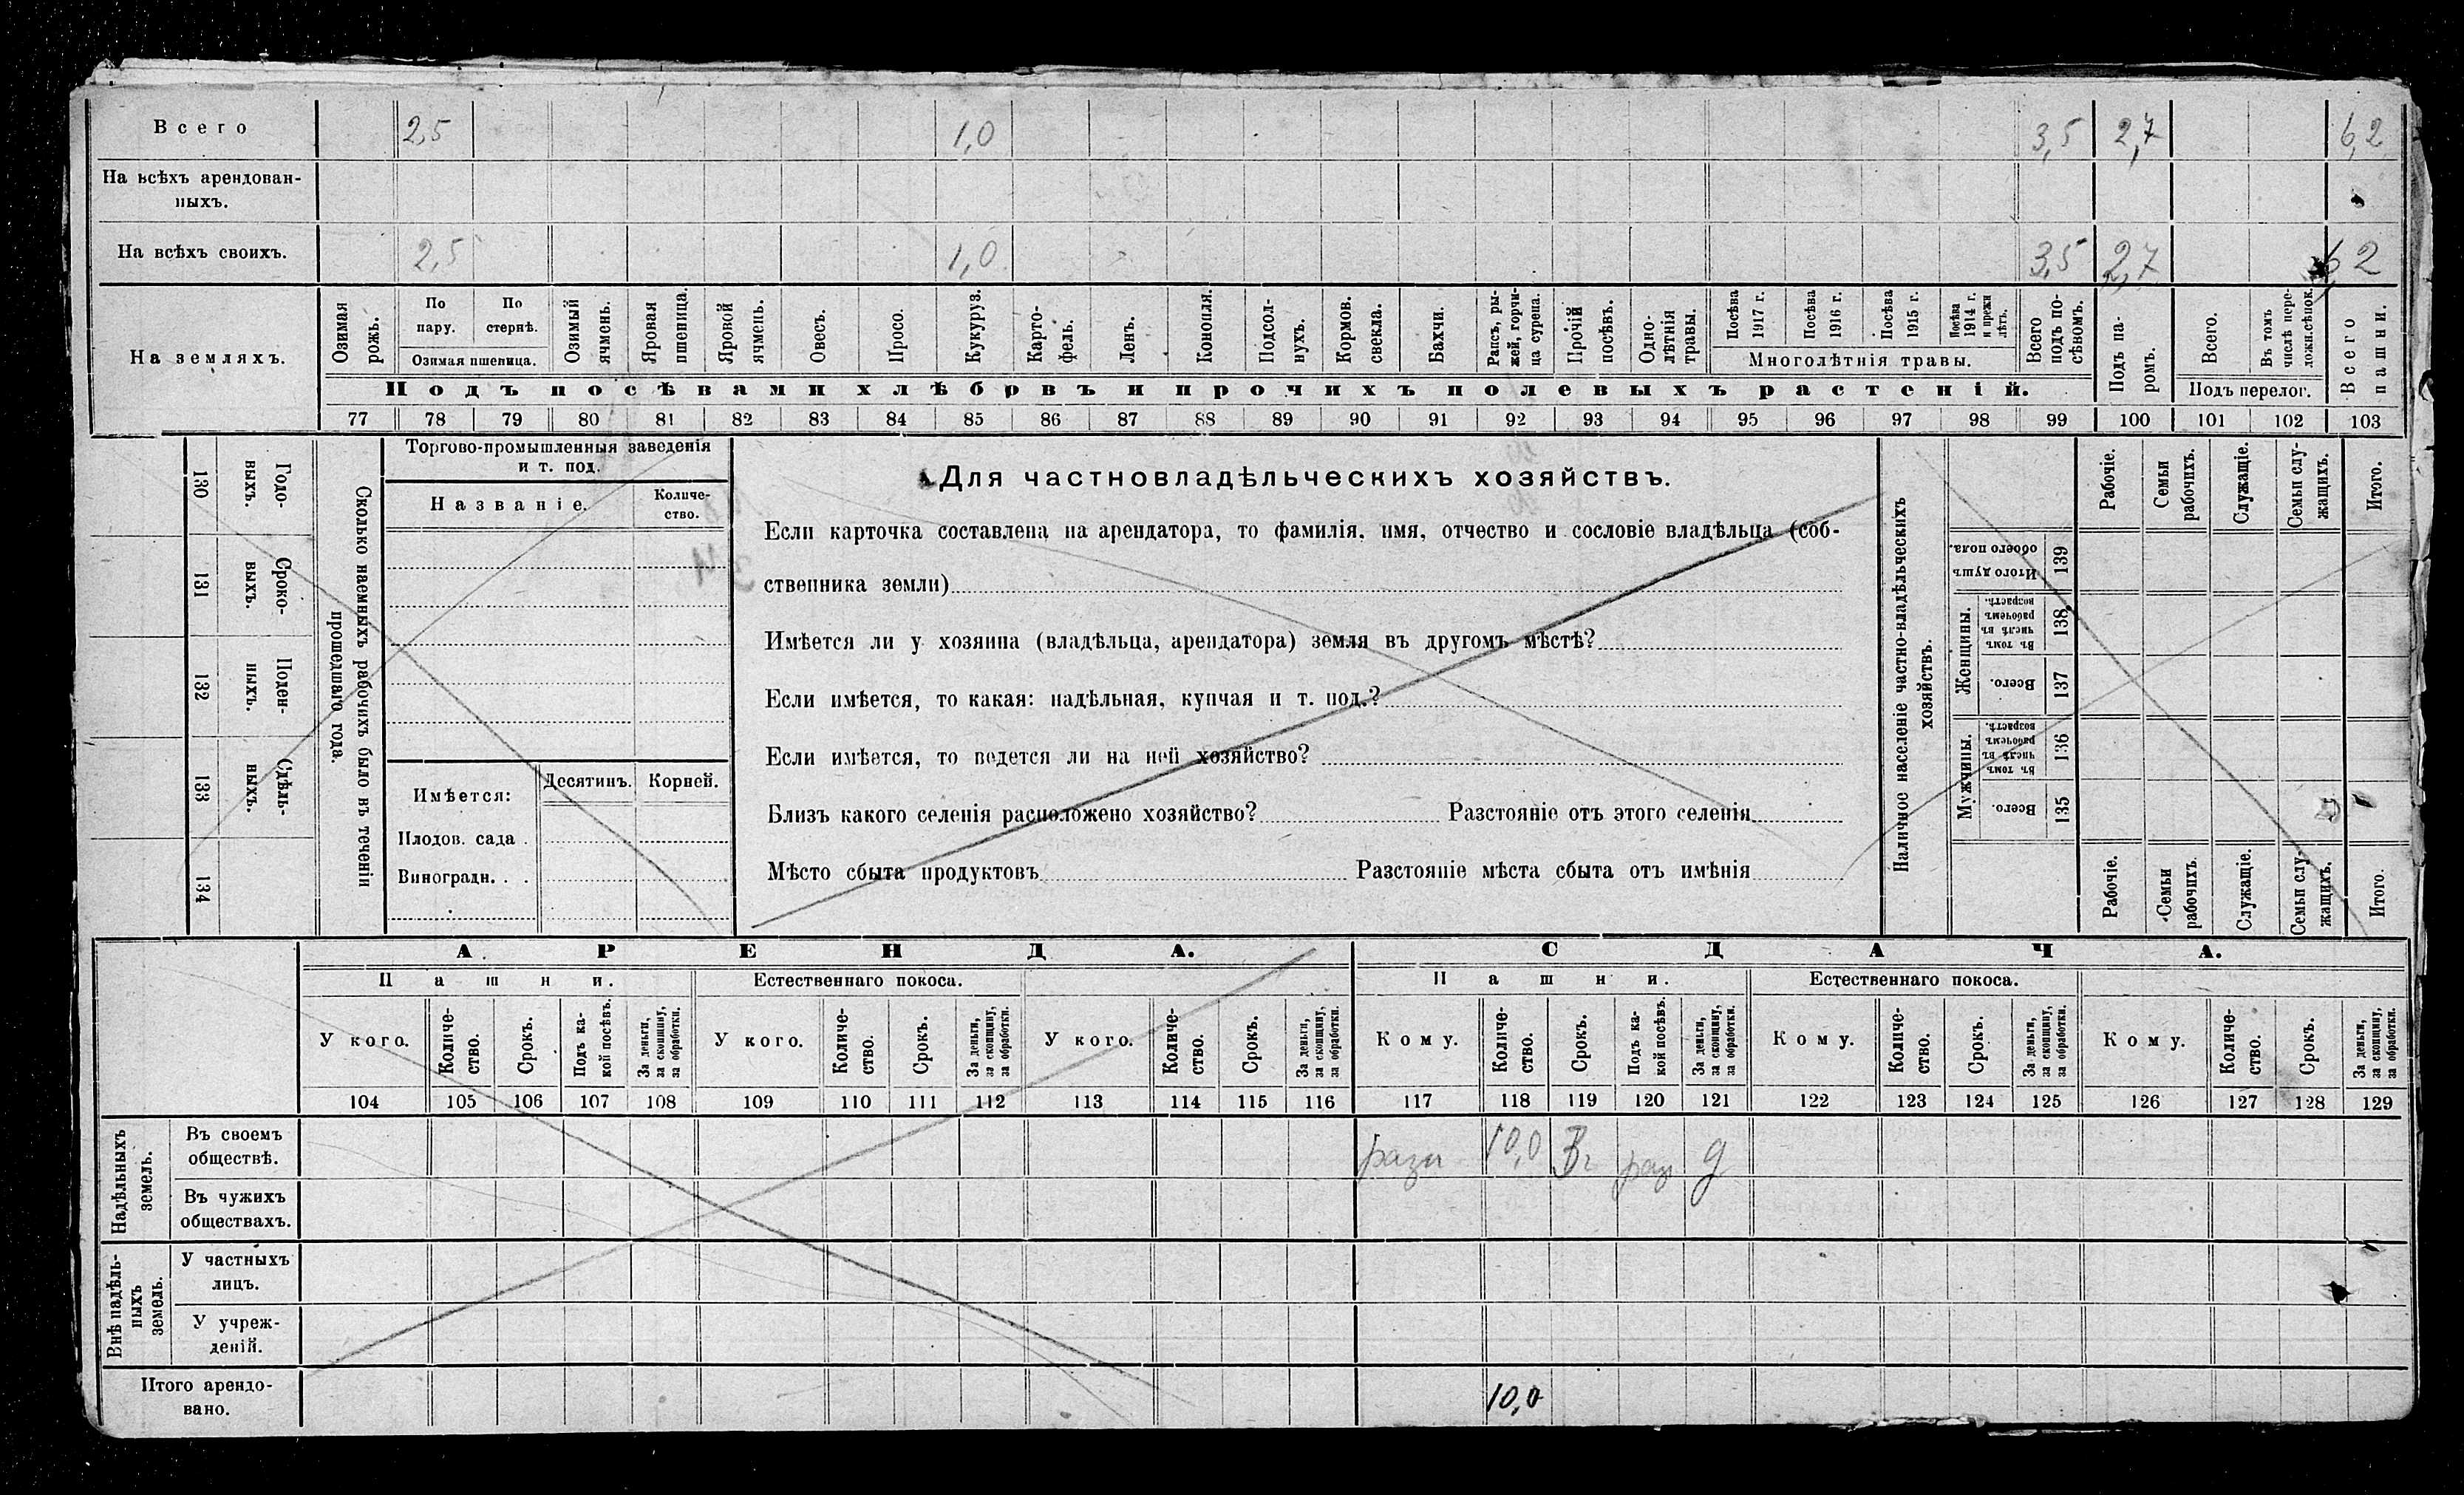 Всего 2,5 1,0 3,5 2,7 6,2
На всѣхъ арендован-
ныхъ.
На всѣхъ своихъ. 2,5 1,0 3,5 2,7 6,2
На земляхъ.
Озимая рожь.
По пару.
По стернѣ.
Озимая пшеница.
Озимый ячмень.
Яровая пшеница.
Яровой ячмень.
Овесъ.
Просо.
Кукуруз.
Карто-
фель.
Ленъ.
Конопля.
Подсол-
нухъ.
Кормов. свекла.
Бахчи.
Рапсъ, ры-
жей, горчи-
ца сурепа.
Прочій посѣвъ.
Одно-
лѣтнія травы.
Посѣва 1917 г.
Посѣва 1916 г.
Посѣва 1915 г.
Посѣва 1914 г. и прежн лѣтъ.
Многолѣтнія травы.
Всего подъ по-
сѣвомъ.
Подъ па-
ромъ.
Всего.
Въ томъ числѣ пере-
ложн.сѣнок.
Подъ перелог.
Всего пашни.
Подъ посѣвами хлѣбовъ и прочихъ полевыхъ растеній.
77 78 79 80 81 82 83 84 85 86 87 88 89 90 91 92 93 94 95 96 97 98 99 100 101 102 103
130 Годо-
выхъ.
131 Сроко-
выхъ.
132 Поден-
ныхъ.
133 Сдѣль-
ныхъ.
134
Сколько наемныхъ рабочихъ было въ теченіи
прошедшаго года.
Торгово-промышленныя заведенія
и т. под.
Названіе.
Количе-
ство.
Имѣется:
Десятинъ. Корней.
Плодов. сада .
Виноградн. . .
Для частновладѣльческихъ хозяйствъ.
Если карточка составлена на арендатора, то фамилія, имя, отчество и сословіе владѣльца (соб-
ственника земли)
Имѣется ли у хозяина (владѣльца, арендатора) земля въ другомъ мѣстѣ?
Если имѣется, то какая: надѣльная, купчая и т. под.?
Если имѣется, то ведется ли на ней хозяйство?
Близъ какого селенія расположено хозяйство? Разстояніе отъ этого селенія
Мѣсто сбыта продуктовъ Разстояніе мѣста сбыта отъ имѣнія
Наличное населеніе частно-владѣльческихъ
хозяйствъ.
Рабочіе.
Семьи рабочихъ.
Служащіе.
Семьи слу-
жащихъ.
Итого.
Итого душъ обоего пола. 139
Женщины.
Въ томъ числѣ въ рабочемъ возрастѣ. 138
Всего. 137
Мужчины.
Въ томъ числѣ въ рабочемъ возрастѣ. 136
Всего. 135
Рабочіе.
Семьи рабочихъ.
Служащіе.
Семьи слу-
жащихъ.
Итого.
АРЕНДА. СДАЧА.
Пашни. Естественнаго покоса. Пашни. Естественнаго покоса.
У кого.
Количе-
ство.
Срокъ.
Подъ ка-
кой посѣвъ.
За деньги, за скопщину, за обработки.
У кого.
Количе-
ство.
Срокъ.
За деньги, за скопщину, за обработки.
У кого.
Количе-
ство.
Срокъ.
За деньги, за скопщину, за обработки.
Кому.
Количе-
ство.
Срокъ.
Подъ ка-
кой посѣвъ.
За деньги, за скопщину, за обработки.
Кому.
Количе-
ство.
Срокъ.
За деньги, за скопщину, за обработки.
Кому.
Количе-
ство.
Срокъ.
За деньги, за скопщину, за обработки.
104 105 106 107 108 109 110 111 112 113 114 115 116 117 118 119 120 121 122 123 124 125 126 127 128 129
Надѣльныхъ земель.
Въ своемъ
обществѣ. 10,0 д
Въ чужихъ
обществахъ.
Внѣ надѣль-
ныхъ земель.
У частныхъ
лицъ.
У учреж-
деній.
Итого арендо-
вано. 10,0